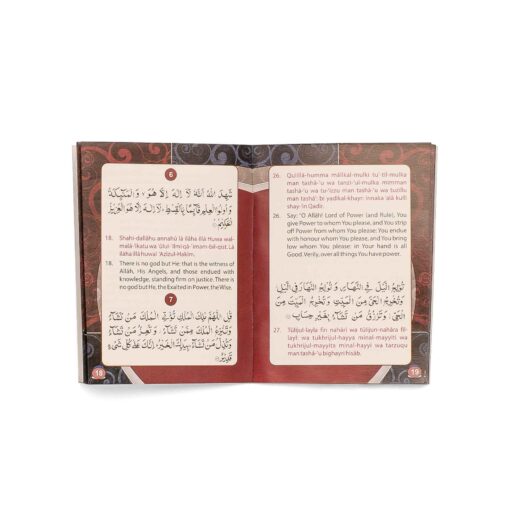 6
شَهِدَ اللهُ أَنَّهُ لَآ إِلٰهَ إِلَّا هُوَ ۙ وَالْمَلٰٓئِكَةُ
وَأُولُوا الْعِلْمِ قَآئِمًا بِالْقِسْطِ ۗ لَآ إِلٰهَ إِلَّا هُوَ الْعَزِيْزُ
الْحَكِيْمُ
18. Shahi-dallāhu annahū lā ilāha illā Huwa wal-
malā-'ikatu wa 'ulul-'ilmi qā-'imam-bil-qist. Lā
ilāha illā huwal 'Azīzul-Hakīm.
18. There is no god but He: that is the witness of
Allāh, His Angels, and those endued with
knowledge, standing firm on justice. There is
no god but He, the Exalted in Power, the Wise.
7
قُلِ اللّٰهُمَّ مٰلِكَ الْمُلْكِ تُؤْتِي الْمُلْكَ مَنْ تَشَآءُ
وَتَنْزِعُ الْمُلْكَ مِمَّنْ تَشَآءُ ۖ وَتُعِزُّ مَنْ تَشَآءُ
وَتُذِلُّ مَنْ تَشَآءُ ۖ بِيَدِكَ الْخَيْرُ ۖ إِنَّكَ عَلٰى كُلِّ شَيْءٍ
قَدِيْرٌ
18
26. Qulillā-humma mālikal-mulki tu'-til-mulka
man tashā-'u wa tanzi-'ul-mulka mimman
tashā-'u wa tu-'izzu man tashā-'u wa tuzillu
man tashā': bi yadikal-khayr: innaka 'alā kulli
shay-'in Qadīr.
26. Say: "O Allāh! Lord of Power (and Rule), You
give Power to whom You please, and You strip
off Power from whom You please: You endue
with honour whom You please, and You bring
low whom You please: in Your hand is all
Good. Verily, over all things You have power.
تُوْلِجُ الَّيْلَ فِي النَّهَارِ وَتُوْلِجُ النَّهَارَ فِي الَّيْلِ
وَتُخْرِجُ الْحَيَّ مِنَ الْمَيِّتِ وَتُخْرِجُ الْمَيِّتَ مِنَ
الْحَيِّ ۖ وَتَرْزُقُ مَنْ تَشَآءُ بِغَيْرِ حِسَابٍ
27. Tūlijul-layla fin nahāri wa tūlijun-nahāra fil-
layl: wa tukhrijul-hayya minal-mayyiti wa
tukhrijul-mayyita minal-hayyi wa tarzuqu
man tashā-'u bighayri hisāb.
19